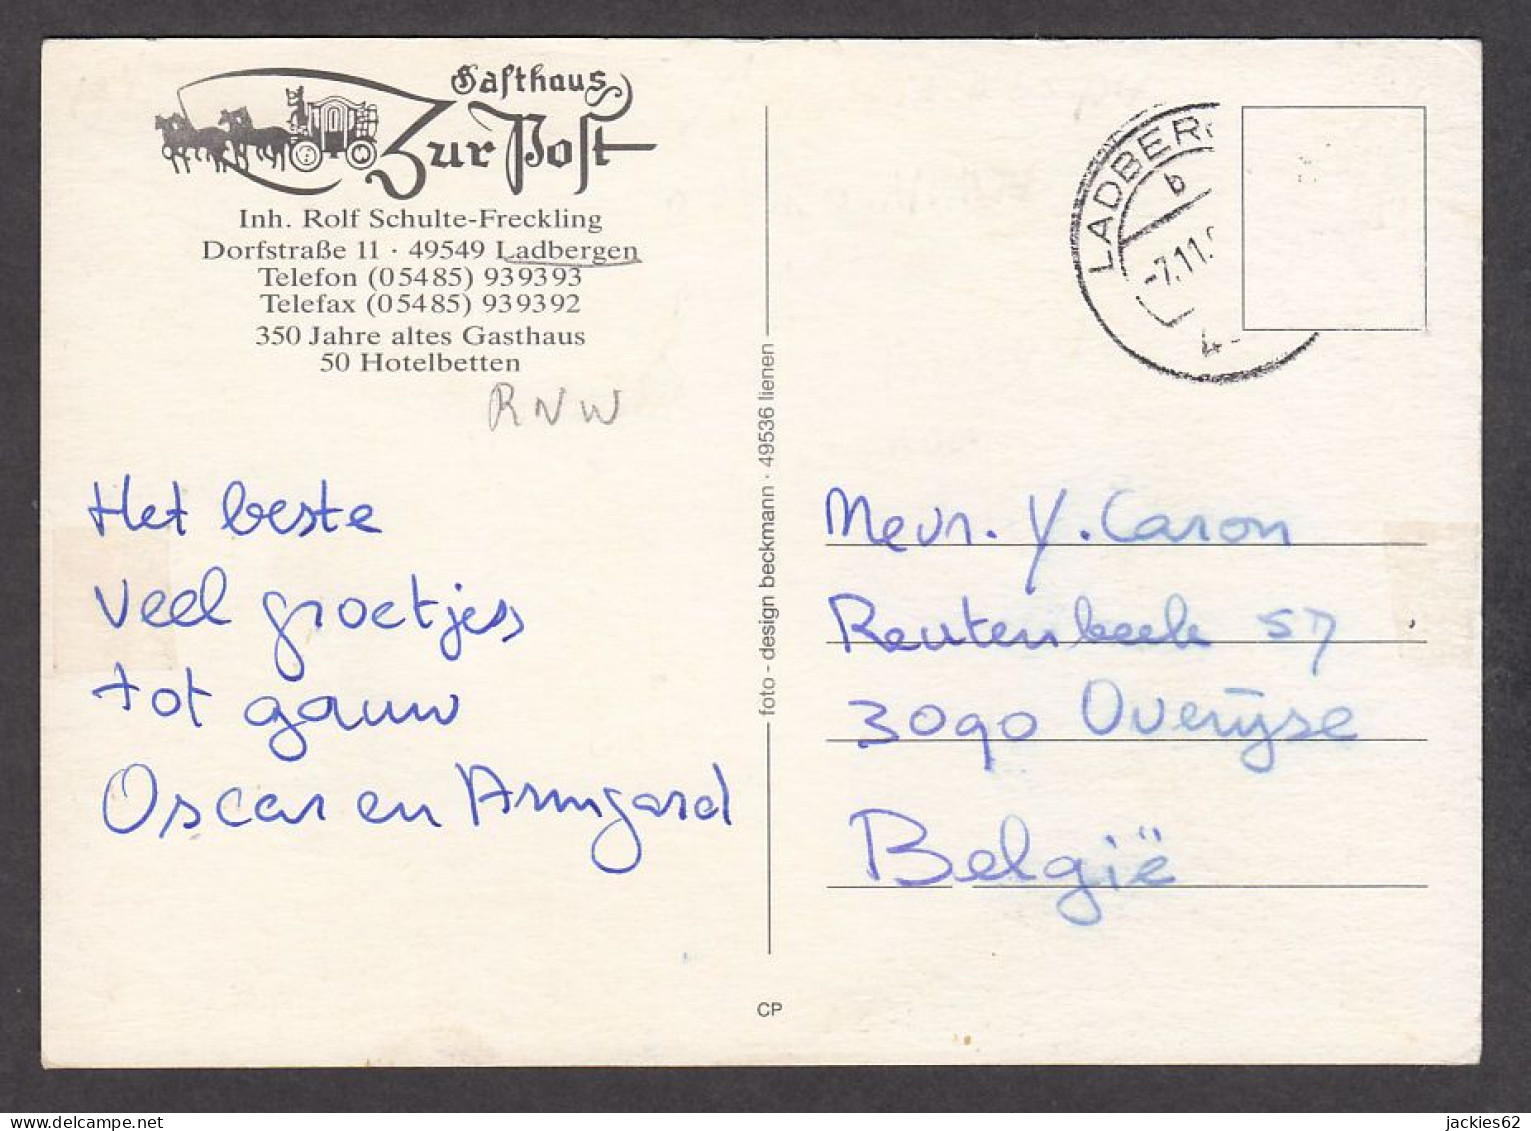 Gasthaus
Zur Post
Inh. Rolf Schulte-Freckling
Dorfstraße 11 · 49549 Ladbergen
Telefon (05485) 939393
Telefax (05485) 939392
350 Jahre altes Gasthaus
50 Hotelbetten
RNW
Het beste
veel groetjes
tot gauw
Oscar en Armgard
foto - design beckmann · 49536 lienen
CP
LADBERG
b
-7.11.
4
Mevr. Y. Caron
Reutenbeek 57
3090 Overijse
België
jackies62